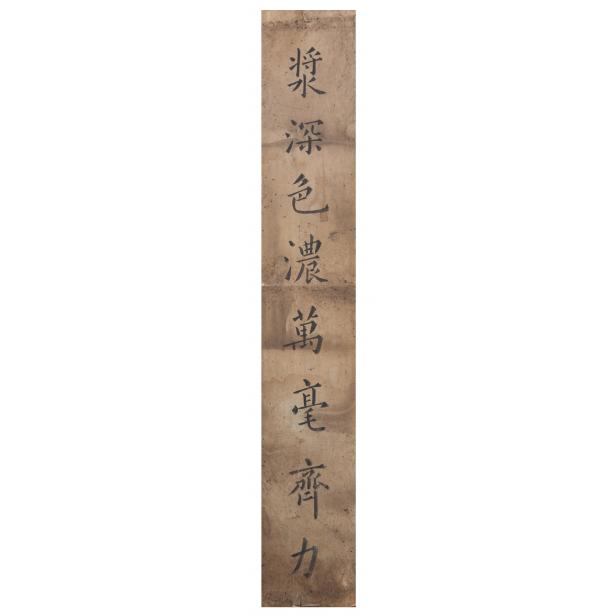 漿深色濃萬毫齊力